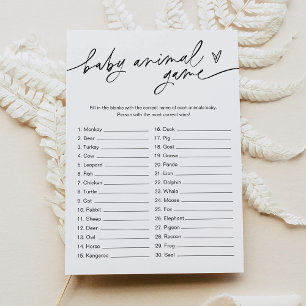 baby animal
game
Fill in the blanks with the correct name of each animal's baby.
Person with the most correct wins!
1. Monkey
2. Bear
3. Turkey
4. Cow
5. Leopard
6. Fish
7. Chicken
8. Turtle
9. Cat
10. Rabbit
11. Sheep
12. Deer
13. Owl
14. Horse
15. Kangaroo
16. Duck
17. Pig
18. Goat
19. Goose
20. Panda
21. Lion
22. Dolphin
23. Whale
24. Moose
25. Fox
26. Elephant
27. Pigeon
28. Racoon
29. Frog
30. Seal